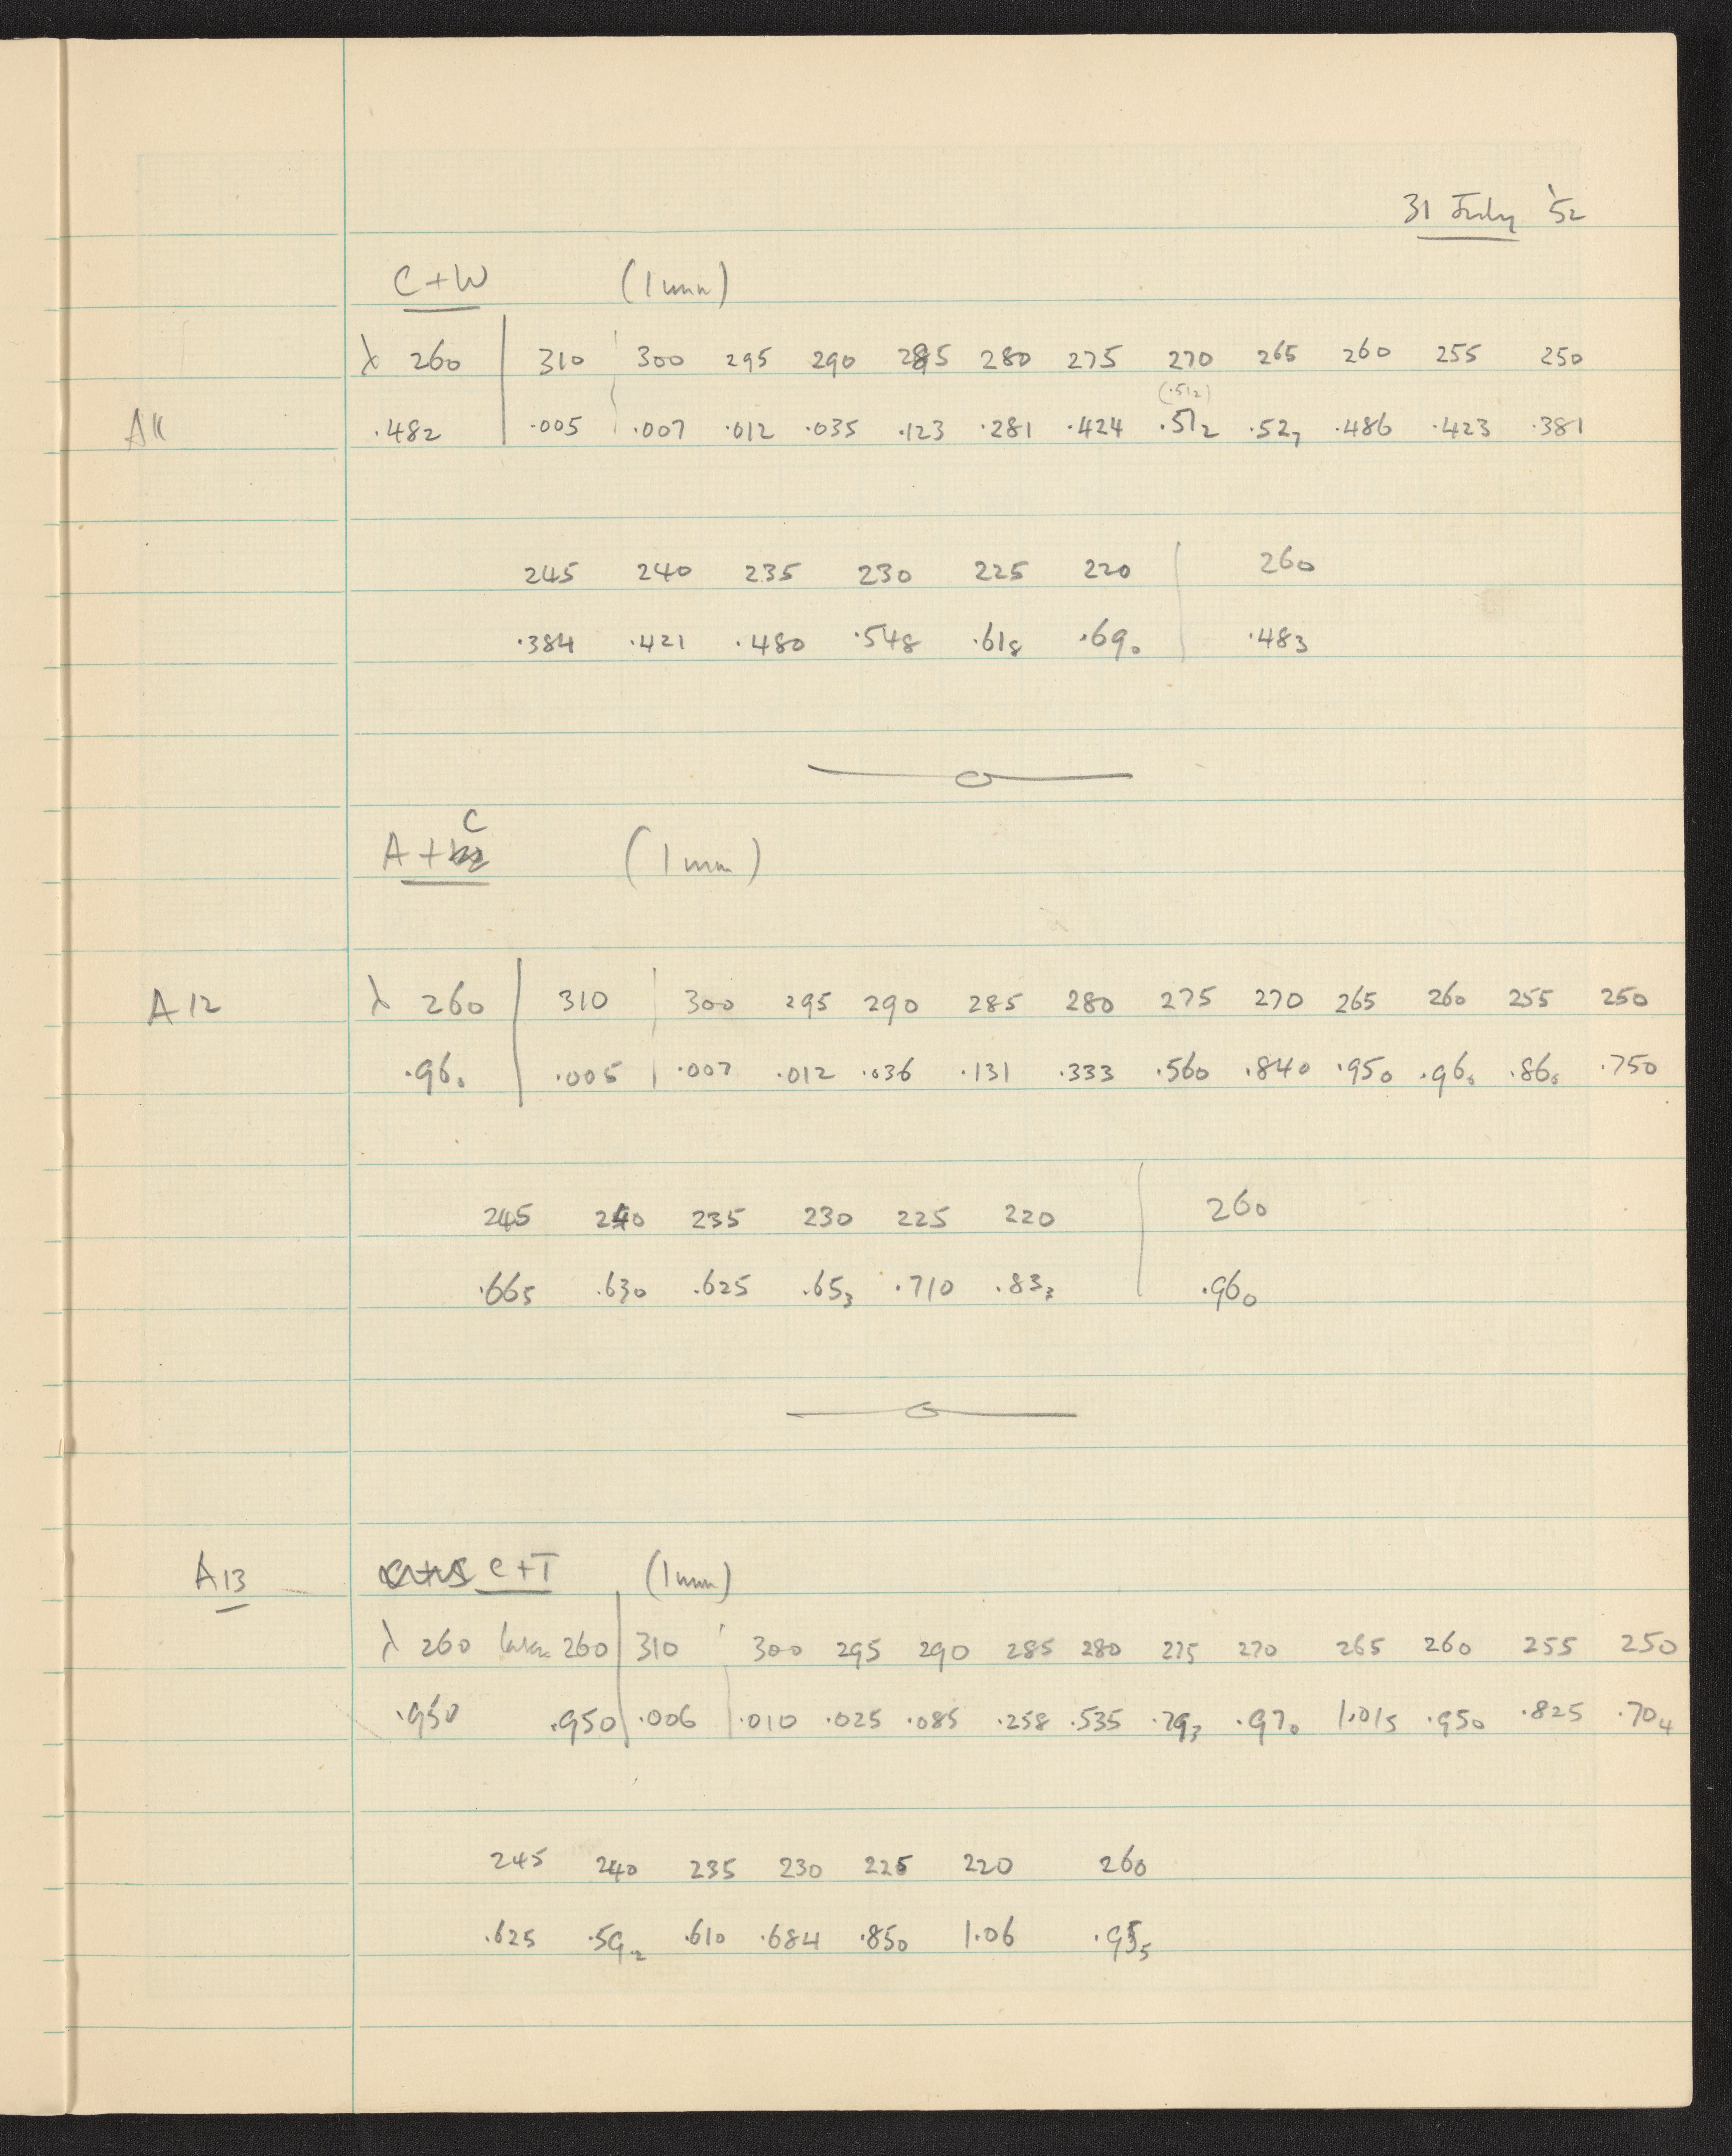 31 July '52
C+W (1 mm)
λ 260 310 300 295 290 285 280 275 270 265 260 255 250
(.512)
A11 .482 .005 .007 .012 .035 .123 .281 .424 .512 .527 .486 .423 .381
245 240 235 230 225 220 260
.384 .421 .480 .548 .618 .690 .483
C
A + (1 mm)
A12 λ 260 310 300 295 290 285 280 275 270 265 260 255 250
.960 .005 .007 .012 .036 .131 .333 .560 .840 .950 .960 .860 .750
245 240 235 230 225 220 260
.665 .630 .625 .653 .710 .833 .960
A13 C+T (1 mm)
λ 260 260 310 300 295 290 285 280 275 270 265 260 255 250
.950 .950 .006 .010 .025 .085 .258 .535 .793 .970 1.015 .950 .825 .704
245 240 235 230 225 220 260
.625 .592 .610 .684 .850 1.06 .955